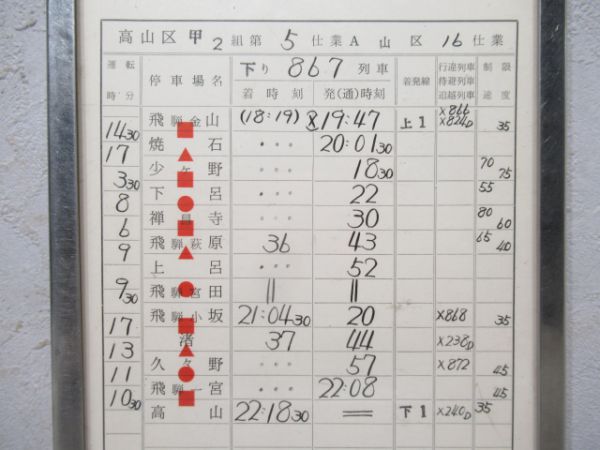 高山区甲2組第5仕業A 山区16仕業
運転時分 停車場名 下り 867 列車 着発線 行違列車 待避列車 追越列車 制限速度
着時刻 発(通)時刻
飛騨金山 (18:19) 19:47 上1 ×866 ×824D 35
14 30
焼石 ・・・ 20:01 30
17
少ヶ野 ・・・ 18 30 70 75
3 30
下呂 ・・・ 22 55
8
禅昌寺 ・・・ 30 80 60
6
飛騨萩原 36 43 65 40
9
上呂 ・・・ 52
飛騨宮田 || ||
9 30
飛騨小坂 21:04 30 20 ×868 35
17
渚 37 44 ×238D
13
久々野 ・・・ 57 ×872 45
11
飛騨一宮 ・・・ 22:08 45
10 30
高山 22:18 30 == 下1 ×240D 35